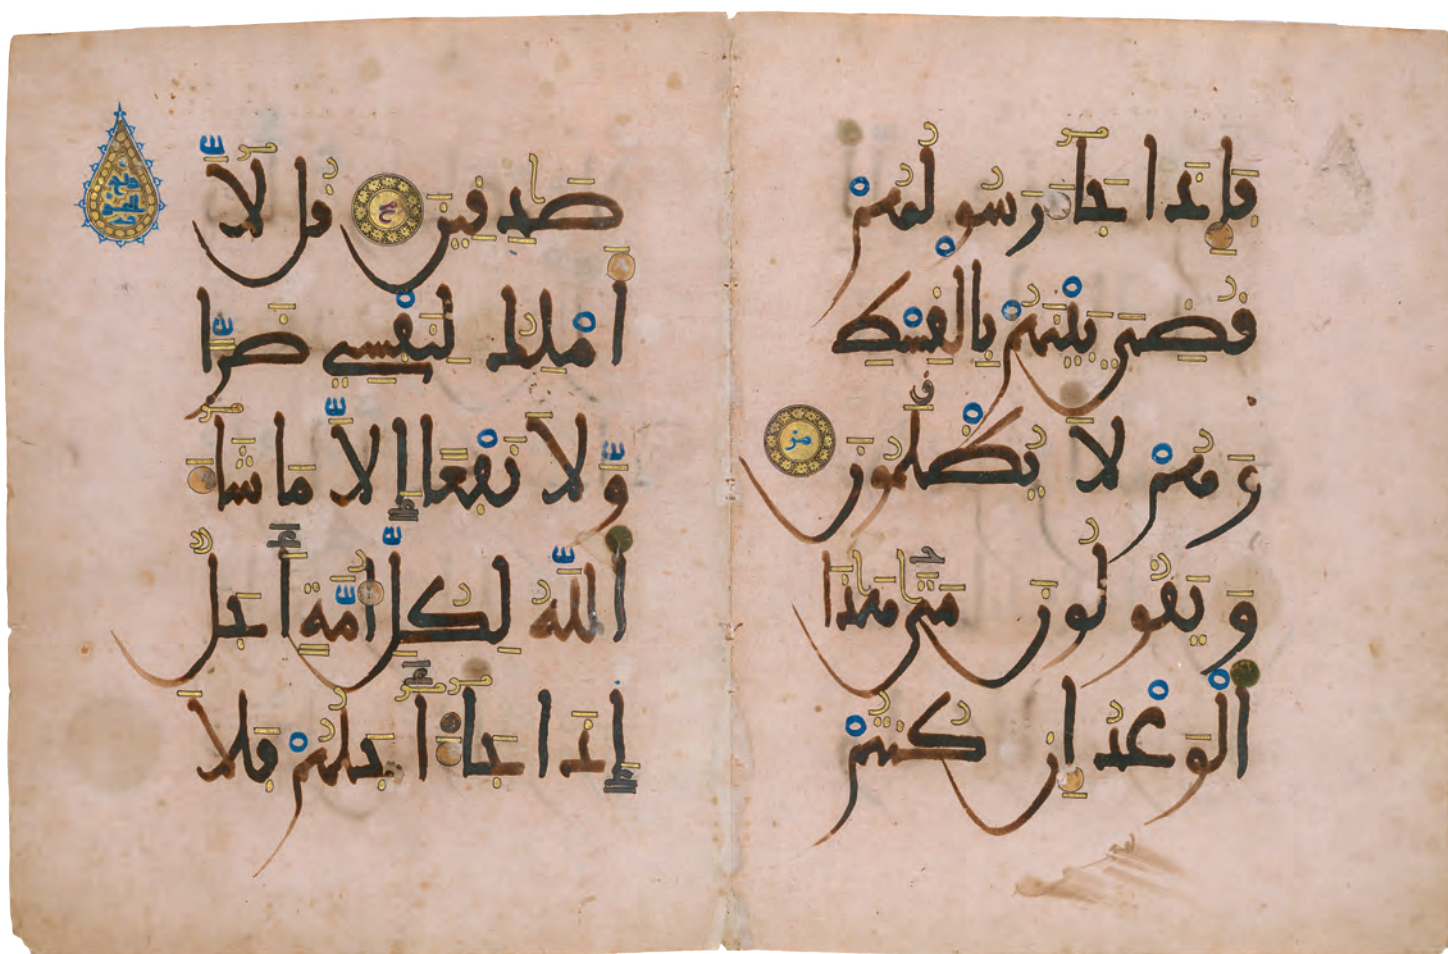 فَإِذَا جَآءَ رَسُولُهُمْ
قُضِيَ بَيْنَهُمْ بِالْقِسْطِ
وَهُمْ لَا يُظْلَمُونَ مز
وَيَقُولُونَ مَتَىٰ هَٰذَا
الْوَعْدُ إِن كُنتُمْ
صَٰدِقِينَ قُل لَّآ
أَمْلِكُ لِنَفْسِي ضَرًّا
وَّلَا نَفْعًا إِلَّا مَا شَآءَ
اللَّهُ لِكُلِّ أُمَّةٍ أَجَلٌ
إِذَا جَآءَ أَجَلُهُمْ فَلَا